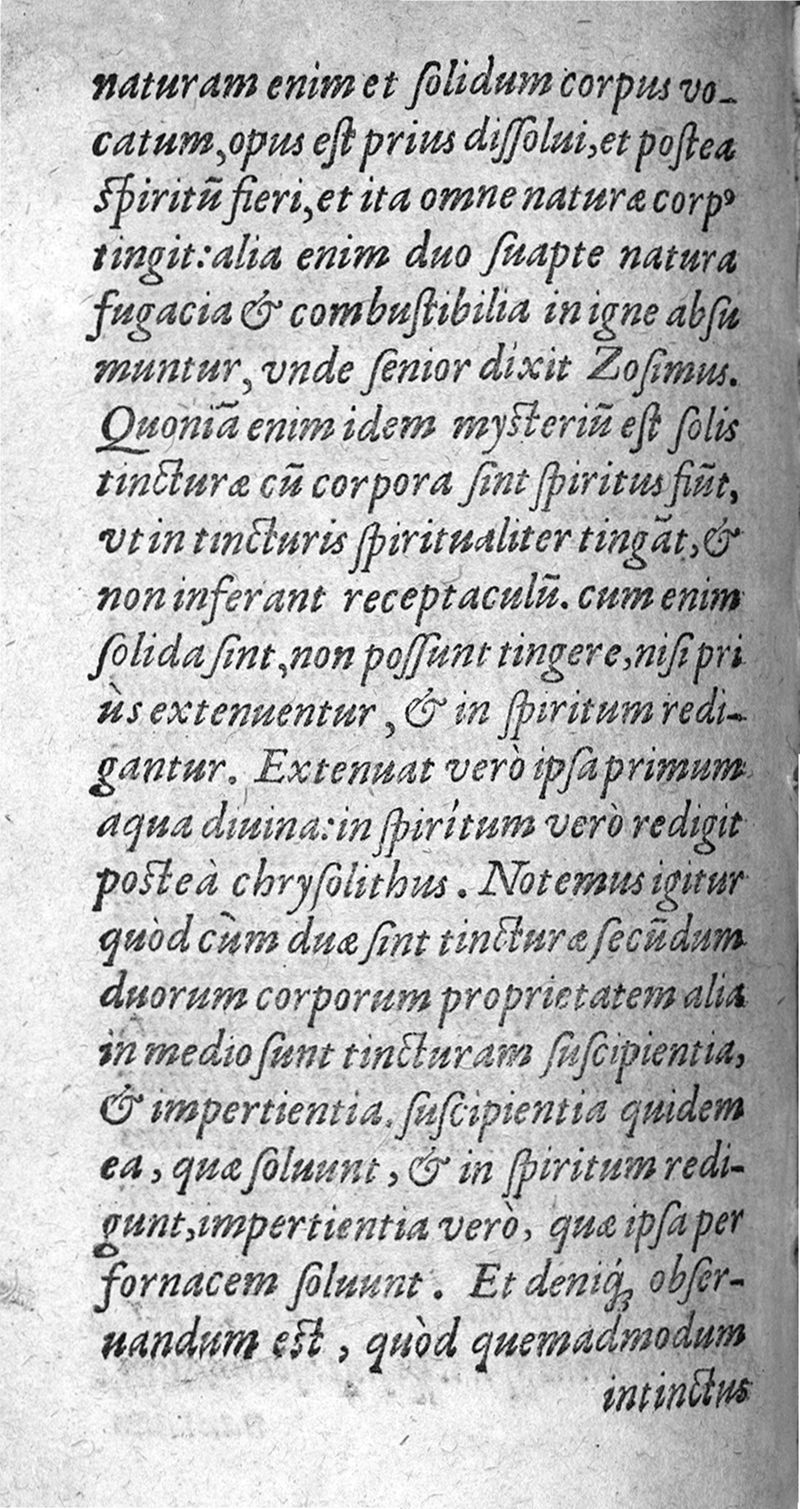 naturam enim et ſolidum corpus vo-
catum, opus eſt prius diſſolui, et poſtea
ſpiritū fieri, et ita omne naturæ corpꝰ
tingit: alia enim duo ſuapte natura
fugacia & combuſtibilia in igne abſu
muntur, vnde ſenior dixit Zoſimus.
Quoniā enim idem myſteriū eſt ſolis
tincturæ cū corpora ſint ſpiritus fiūt,
vt in tincturis ſpiritualiter tingāt, &
non inferant receptaculū. cum enim
ſolida ſint, non poſſunt tingere, niſi pri
ùs extenuentur, & in ſpiritum redi-
gantur. Extenuat verò ipſa primum
aqua diuina: in ſpirítum verò redigit
poſteà chryſolithus. Notemus igitur
quòd cùm duæ ſint tincturæ ſecūdum
duorum corporum proprietatem alia
in medio ſunt tincturam ſuſcipientia,
& impertientia. ſuſcipientia quidem
ea, quæ ſoluunt, & in ſpiritum redi-
gunt, impertientia verò, quæ ipſa per
fornacem ſoluunt. Et deniq́; obſer-
uandum eſt, quòd quemadmodum
intinctus